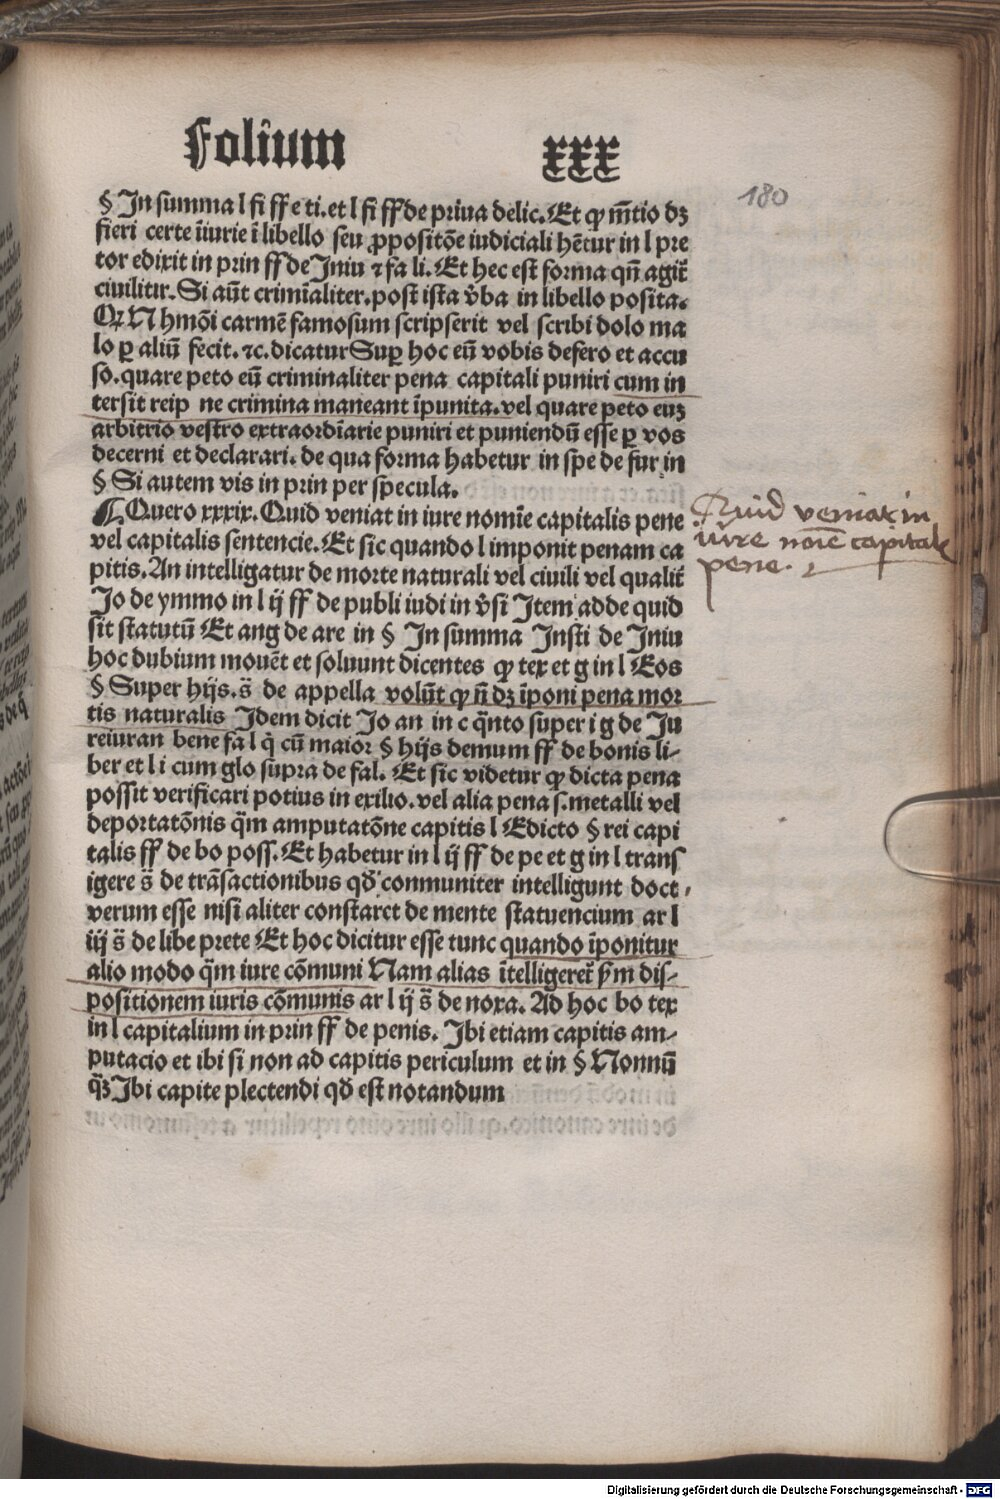 Folium xxx
180
§ In summa l si ff e ti. et l si ff de priua delic. Et qꝫ m̄tio dꝫ
fieri certe īiurie ī libello seu ꝓpositōe iudiciali hētur in l pre
tor edixit in prin ff de Iniu ⁊ fa li. Et hec est forma qn̄ agit̄
ciuilitir. Si aūt crimīaliter. post ista v̄ba in libello posita.
Qꝛ N hmōi carmē famosum scripserit vel scribi dolo ma
lo ꝑ aliū fecit. ⁊c. dicatur Suꝑ hoc eū vobis defero et accu
so. quare peto eū criminaliter pena capitali puniri cum in
tersit reip ne crimina maneant īpunita. vel quare peto euꝫ
arbitrio vestro extraordīarie puniri et puniendū esse ꝑ vos
decerni et declarari. de qua forma habetur in spe de fur in
§ Si autem vis in prin per specula.
¶ Quero xxxix. Quid veniat in iure nomīe capitalis pene
vel capitalis sentencie. Et sic quando l imponit penam ca
pitis. An intelligatur de morte naturali vel ciuili vel qualit̄
Jo de ymmo in l ij ff de publi iudi in v̄si Item adde quid
sit statutū Et ang de are in § In summa Insti de Iniu
hoc dubium mouēt et soluunt dicentes qꝫ tex et g in l Eos
§ Super hijs. s̄ de appella volūt qꝫ n̄ dꝫ īponi pena mor
tis naturalis Idem dicit Jo an in c q̄nto super i g de Iu
reiuran bene fa l q̇ cū maior § hijs demum ff de bonis li-
ber et l i cum glo supra de fal. Et sic videtur qꝫ dicta pena
possit verificari potius in exilio. vel alia pena s. metalli vel
deportatōnis q̄m amputatōne capitis l Edicto § rei capi
talis ff de bo poss. Et habetur in l ij ff de pe et g in l trans
igere s̄ de trāsactionibus qd̛ conmuniter intelligunt doct.
verum esse nisi aliter constaret de mente statuencium ar l
iij s̄ de libe prete Et hoc dicitur esse tunc quando īponitur
alio modo q̄m iure cōmuni Nam alias ītelligeret̄ ẜm dis-
positionem iuris cōmunis ar l ij s̄ de noxa. Ad hoc bo tex
in l capitalium in prin ff de penis. Ibi etiam capitis am-
putacio et ibi si non ad capitis periculum et in § Nonnū
q̄ꝫ Ibi capite plectendi qd̛ est notandum
Quid veniat in
iure noīe capitalis
pene.
Digitalisierung gefördert durch die Deutsche Forschungsgemeinschaft - DFG